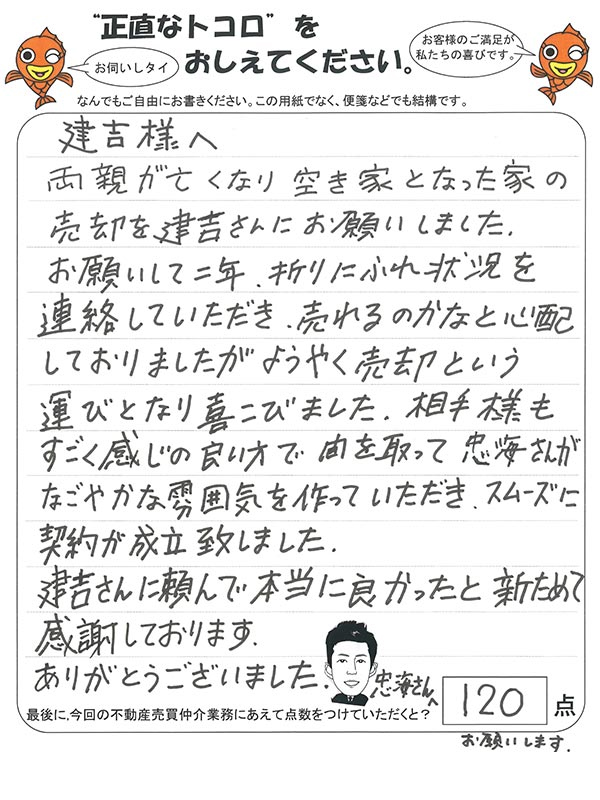 "正直なトコロ"を
おしえてください。
お伺いしタイ
お客様のご満足が
私たちの喜びです。
なんでもご自由にお書きください。この用紙でなく、便箋などでも結構です。
建吉様へ
両親が亡くなり 空き家となった家の
売却を建吉さんにお願いしました.
お願いして二年、折りにふれ状況を
連絡していただき、売れるのかなと心配
しておりましたがようやく売却という
運びとなり喜こびました. 相手様も
すごく感じの良い方で 間を取って 忠海さんが
なごやかな雰囲気を作っていただき、スムーズに
契約が成立致しました.
建吉さんに頼んで本当に良かったと新ためて
感謝しております.
ありがとうございました.
忠海さんへ
最後に、今回の不動産売買仲介業務にあえて点数をつけていただくと?
120点
お願いします.